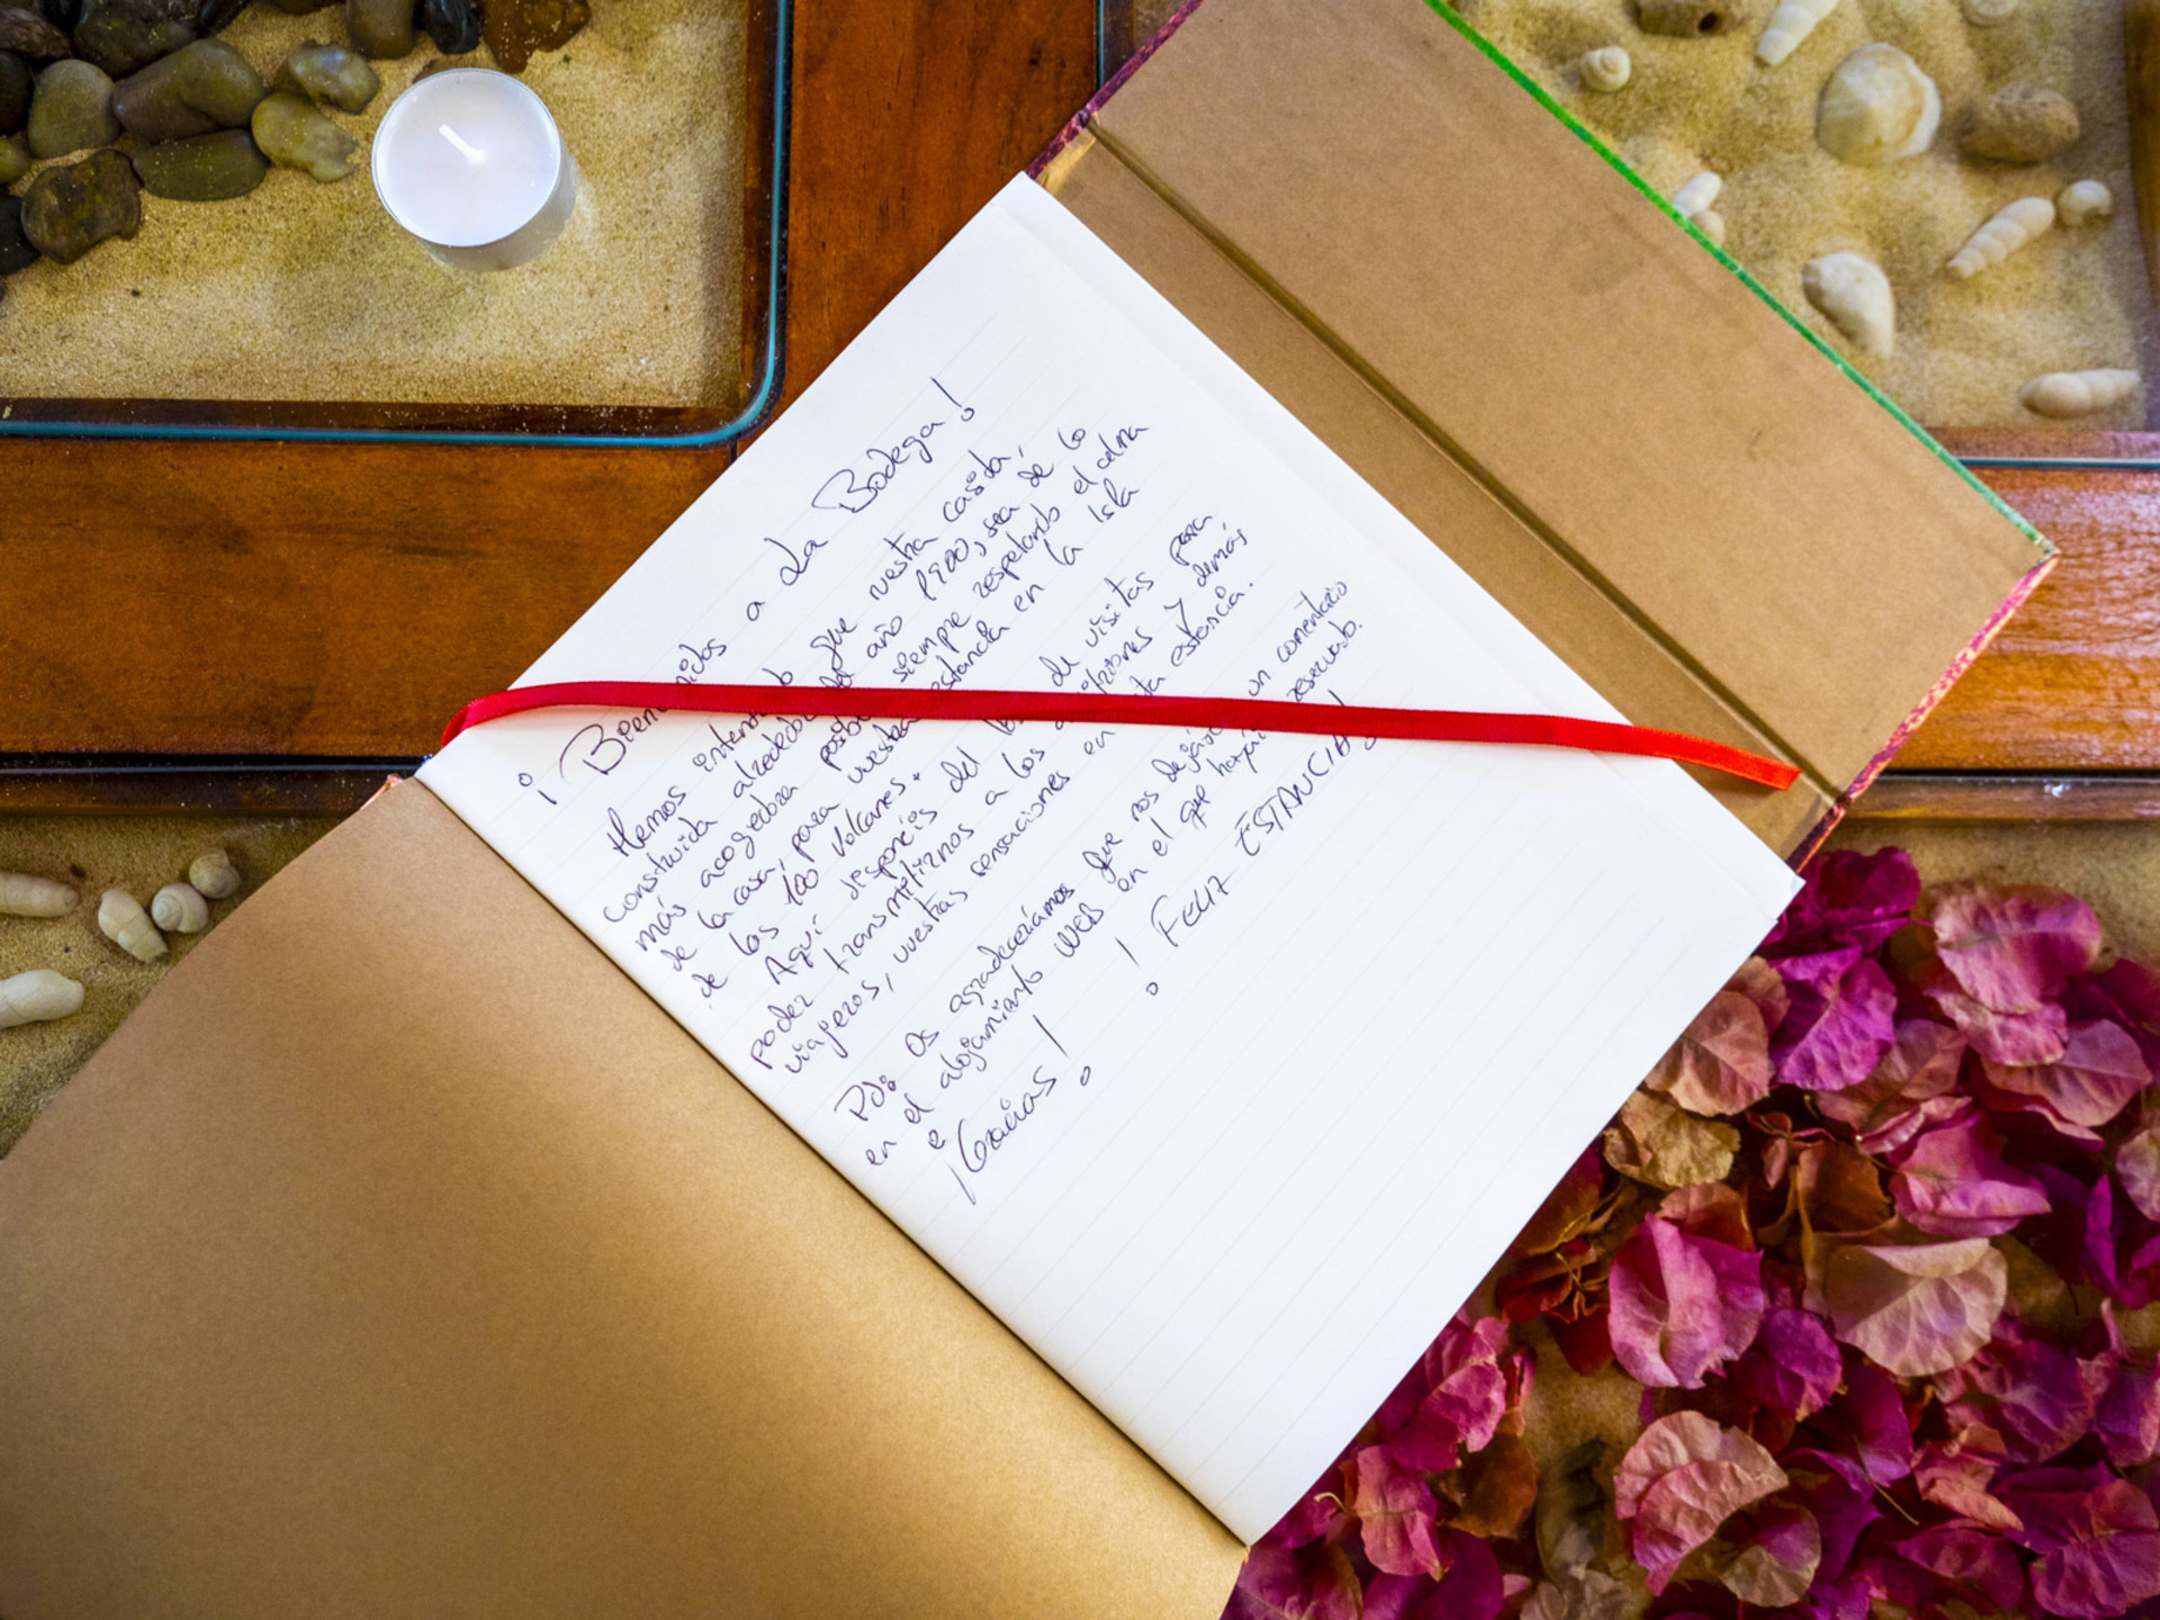 ¡Bienvenidos a La Bodega!
Hemos intentado que nuestra casita,
construida alrededor del año 1900, sea de lo
más acogedora posible siempre respetando el alma
de la casa, para vuestra estancia en la Isla
de los 100 Volcanes.
Aquí disponéis del libro de visitas para
poder transmitirnos a los anfitriones y demás
viajeros, vuestras sensaciones en esta estancia.
Pd: Os agradeceríamos que nos dejáseis un comentario
en el alojamiento web en el que hayáis reservado.
e
¡Gracias! ¡FELIZ ESTANCIA!